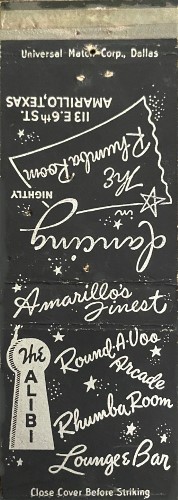 Universal Match Corp., Dallas
113 E. 6th ST.
AMARILLO, TEXAS
The
Rhumba Room
NIGHTLY
in
dancing
Amarillo's
Finest
The
ALIBI
Round-A-Voo
Arcade
Rhumba Room
Lounge & Bar
Close Cover Before Striking